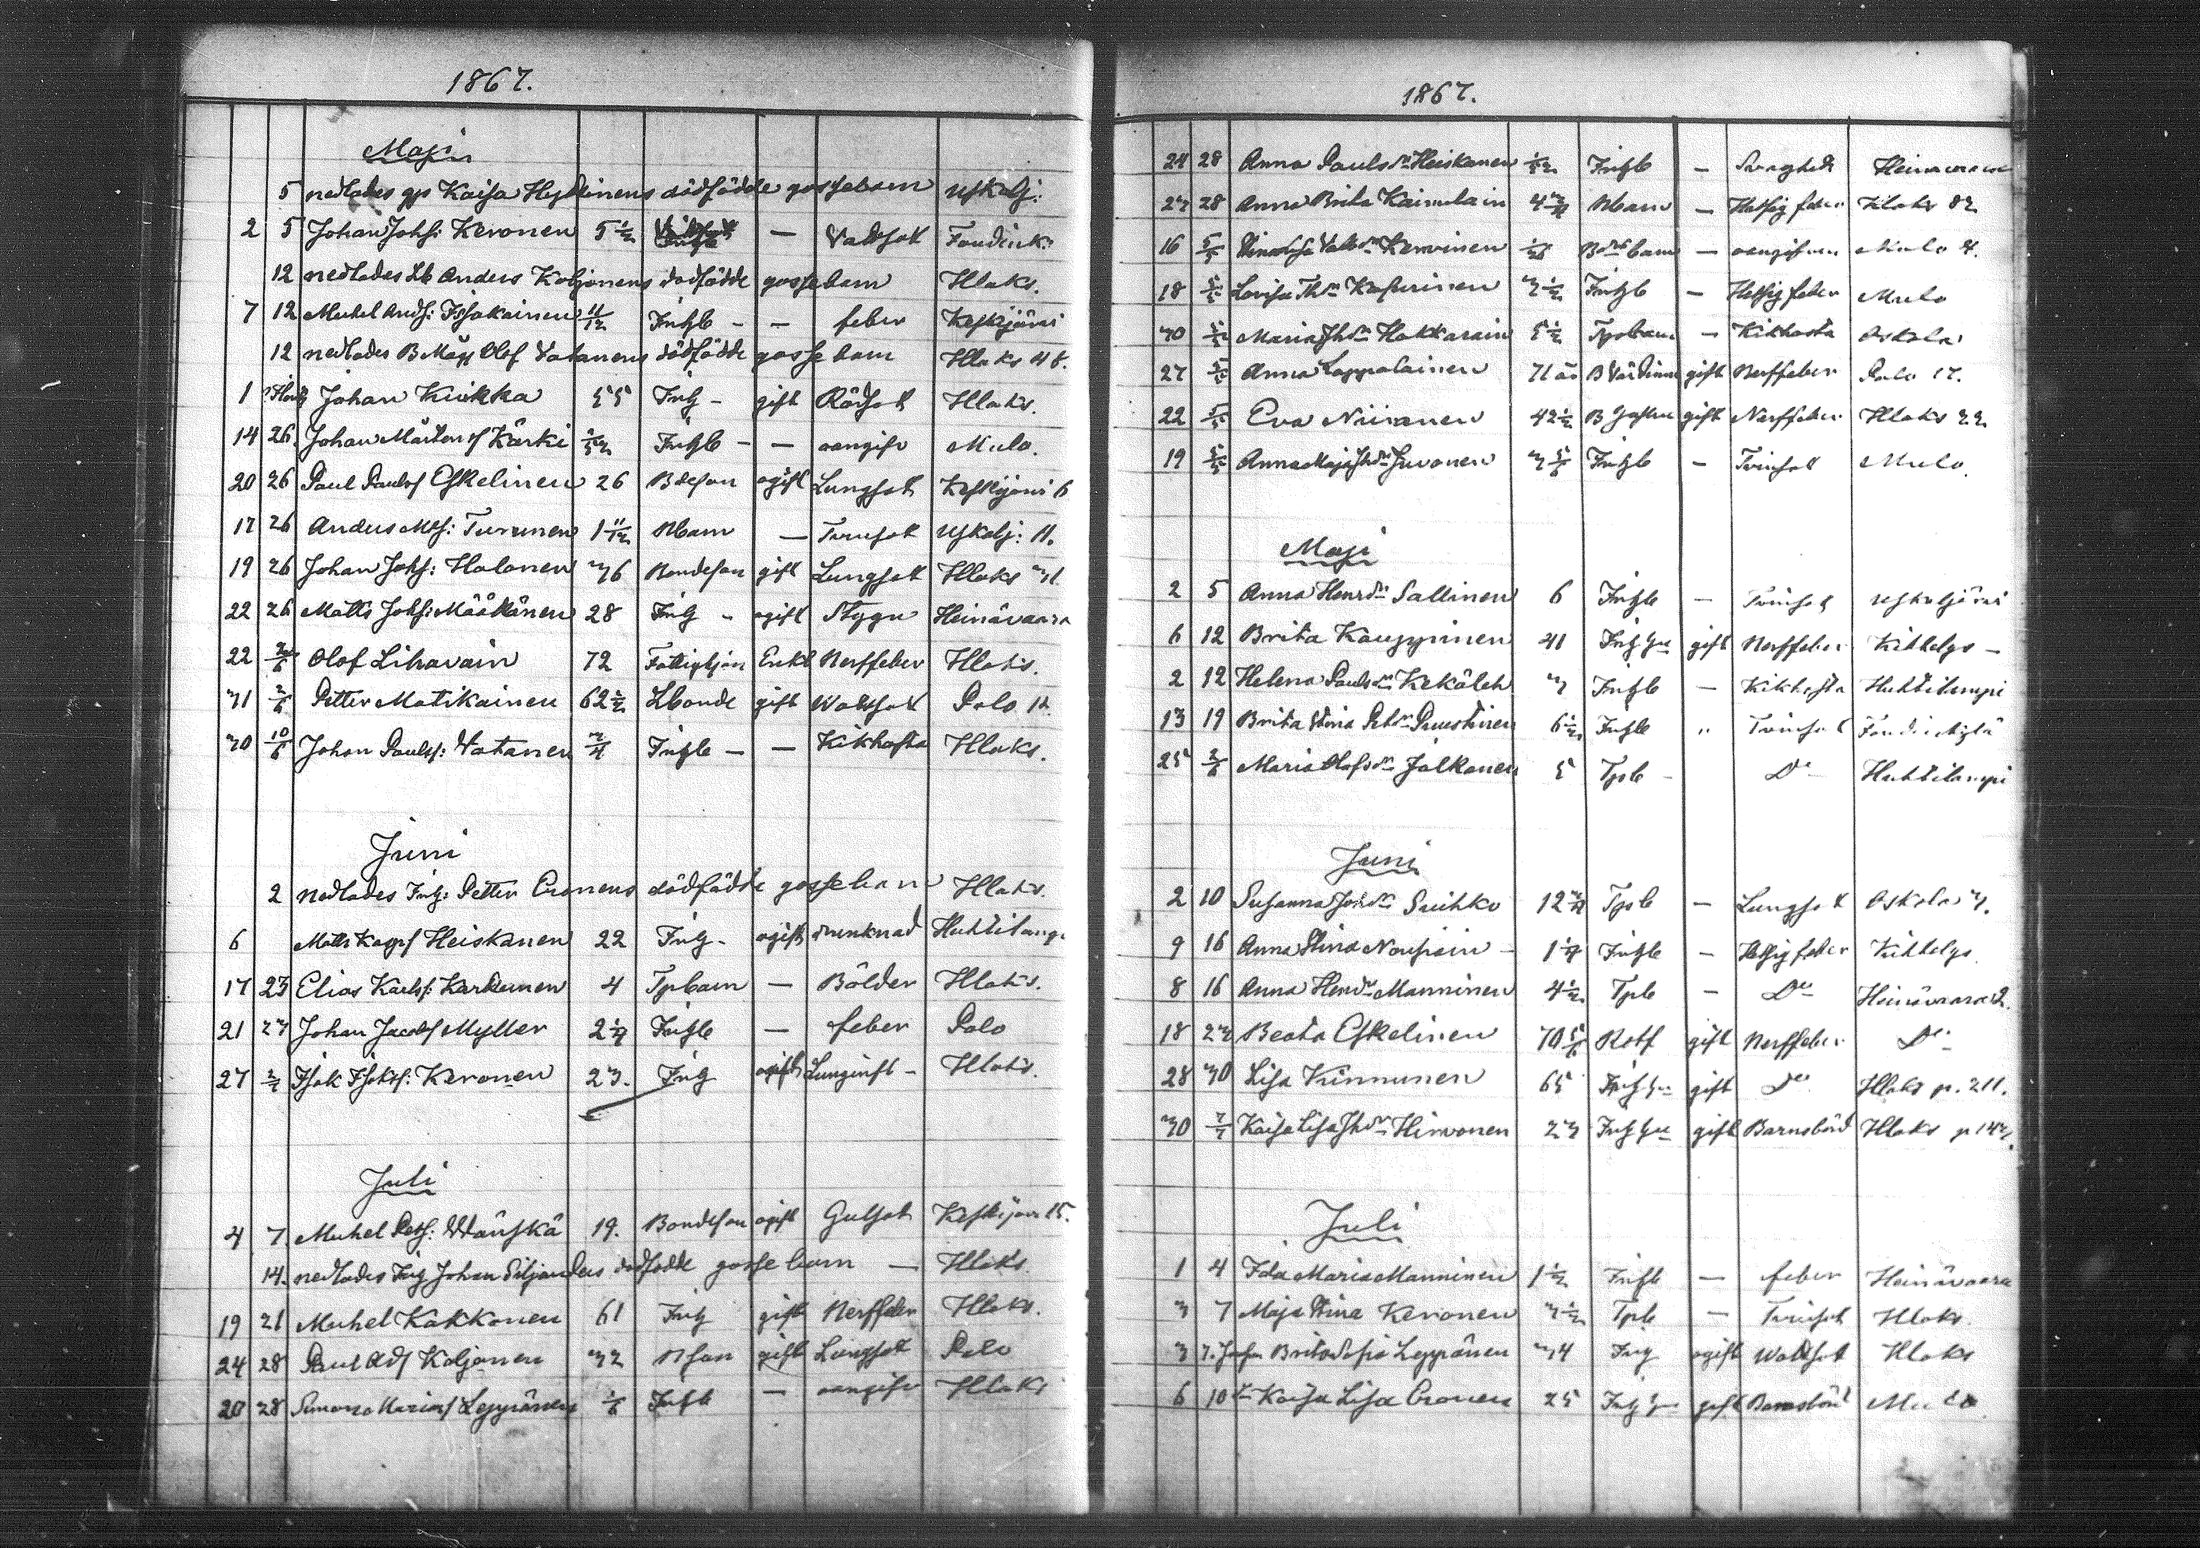 1867.
Maji
5 nedlades gps Kaisa Hyttinens dödfödde gossebarn Uskalj:
2 5 Johan Johs: Keronen 5 1/2 Inhsb — Vattsot
12 nedlades Lb Anders Koljonens dödfödde gossebarn Illoks.
7 12 Mickel Ands: Issakainen 11/12 Inhsb - - feber Keskijärvi
12 nedlades B Måg Olof Vatanens dödfödde gossebarn Illoks 48.
1 Johan Kiukka 55 Inh - gift Rödsot Illoks.
14 26. Johan Mårtens Kärki Inhsb - - oangifv Mulo.
20 26 Paul Paulss Eskelinen 26 Bdeson ogift Lungsot Keskijärvi 6
17 26 Anders Mts: Turunen 1 11/12 Bbarn — Trinsot Uskalj: 11.
19 26 Johan Johs: Halonen 36 Bondeson gift Lungsot Illoks 31
22 26 Matts Johs: Määttänen 28 Inh - ogift Stygn Heinävaara
22 2/6 Olof Lihavain 72 Fattighjon Enkl Nerffeber Illoks.
31 2/6 Petter Matikainen 62 1/2 Lbonde gift Wattsot Polo 12.
30 10/6 Johan Paulss: Vatanen 3/4 Inhsb - - Kikhosta Illoks.
Juni
2 nedlades Inh: Petter Eronens dödfödde gossebarn Illoks.
6 Matts Kasps Heiskanen 22 Inh - ogift drunknad Huhtilampi
17 23 Elias Karlss: Karkunen 4 Tpbarn — Bölder Illoks.
21 23 Johan Jacobss Myller 2 1/4 Inhsb — feber Polo
27 2/7 Isak Isakss: Keronen 23. Inh ogift Lunginfl - Illoks.
Juli
4 7. Mickel Pets: Wänskä 19. Bondeson ogift Gulsot Keskijärvi 15.
14. nedlades Inh Johan Siljanders dödfödde gossebarn — Illoks
19 21 Mickel Kakkonen 61 Inh gift Nerffeber Illoks.
24 28 Paul Ads Koljonen 32 Bson gift Lungsot Polo
20 28 Simon Mariass Leppänen 1/6 Inhsb — oangifv Illoks
1867.
24 28 Anna Paulsdr Heiskanen Inhsb — Svaghet Heinävaara
23 28 Anna Brita Kaimulain 4 3/4 Bbarn — Hetsig feber Illoks 82
16 5/5 Kervinen Bdesbarn — oangifven Mulo 4.
18 5/5 Lovisa Thdr Kasurinen 3 1/2 Inhsb — Hetsig feber Mulo
30 5/5 Maria Jhdr Hakkarain 5 1/2 Tpsbarn — Kikhosta Oskola
27 5/5 Anna Lappalainen 71 år B Värdinna gift Nerffeber Polo 17.
22 5/5 Eva Niiranen 42 1/2 B Hustru gift Nerffeber Illoks 22
19 5/5 Anna Maja Jhdr Juvonen 3 5/6 Inhsb - Trinsot Mulo.
Maji
2 5 Anna Henrdr Sallinen 6 Inhsb — Trinsot Uskaljärvi
6 12 Brita Kauppinen 41 Inh Hu gift Nerffeber Kihtelys —
2 12 Helena Paulsdr Kekäleh 3 Inhsb — Kikhosta Huhtilampi
13 19 Brita Stina Petdr Puustinen 6 1/2 Inhsb " Trinsot
25 2/6 Maria Olofsdr Jalkanen 5 Tpsb - Do Huhtilampi
Juni
2 10 Susanna Johdr Suihko 12 3/4 Tpsb — Lungsot Oskola 3.
9 16 Anna Stina Nousiain - 1 1/4 Inhsb — Hetsig feber Kihtelys
8 16 Anna Hendr Manninen 4 1/2 Tpb — Do Heinävaara 2
18 23 Beata Eskelinen 70 5/6 Rotf gift Nerffeber Do
28 30 Lisa Kinnunen 65 Inh Hu gift Do Illoks p. 211.
30 7/7 Kaisa Lisa Jhdr Hirvonen 23 Inh Hu gift Barnsbörd Illoks p 143.
Juli
1 4 Ida Maria Manninen 1 1/2 Inhsb — feber Heinävaara
3 7 Maja Stina Keronen 3 1/2 Tpb — Trinsot Illoks
3 7. Brita Sofia Leppänen 34 Inh ogift Wattsot Illoks
6 10 Kaisa Lisa Eronen 25 Inh Hu gift Barnsbörd Mulo